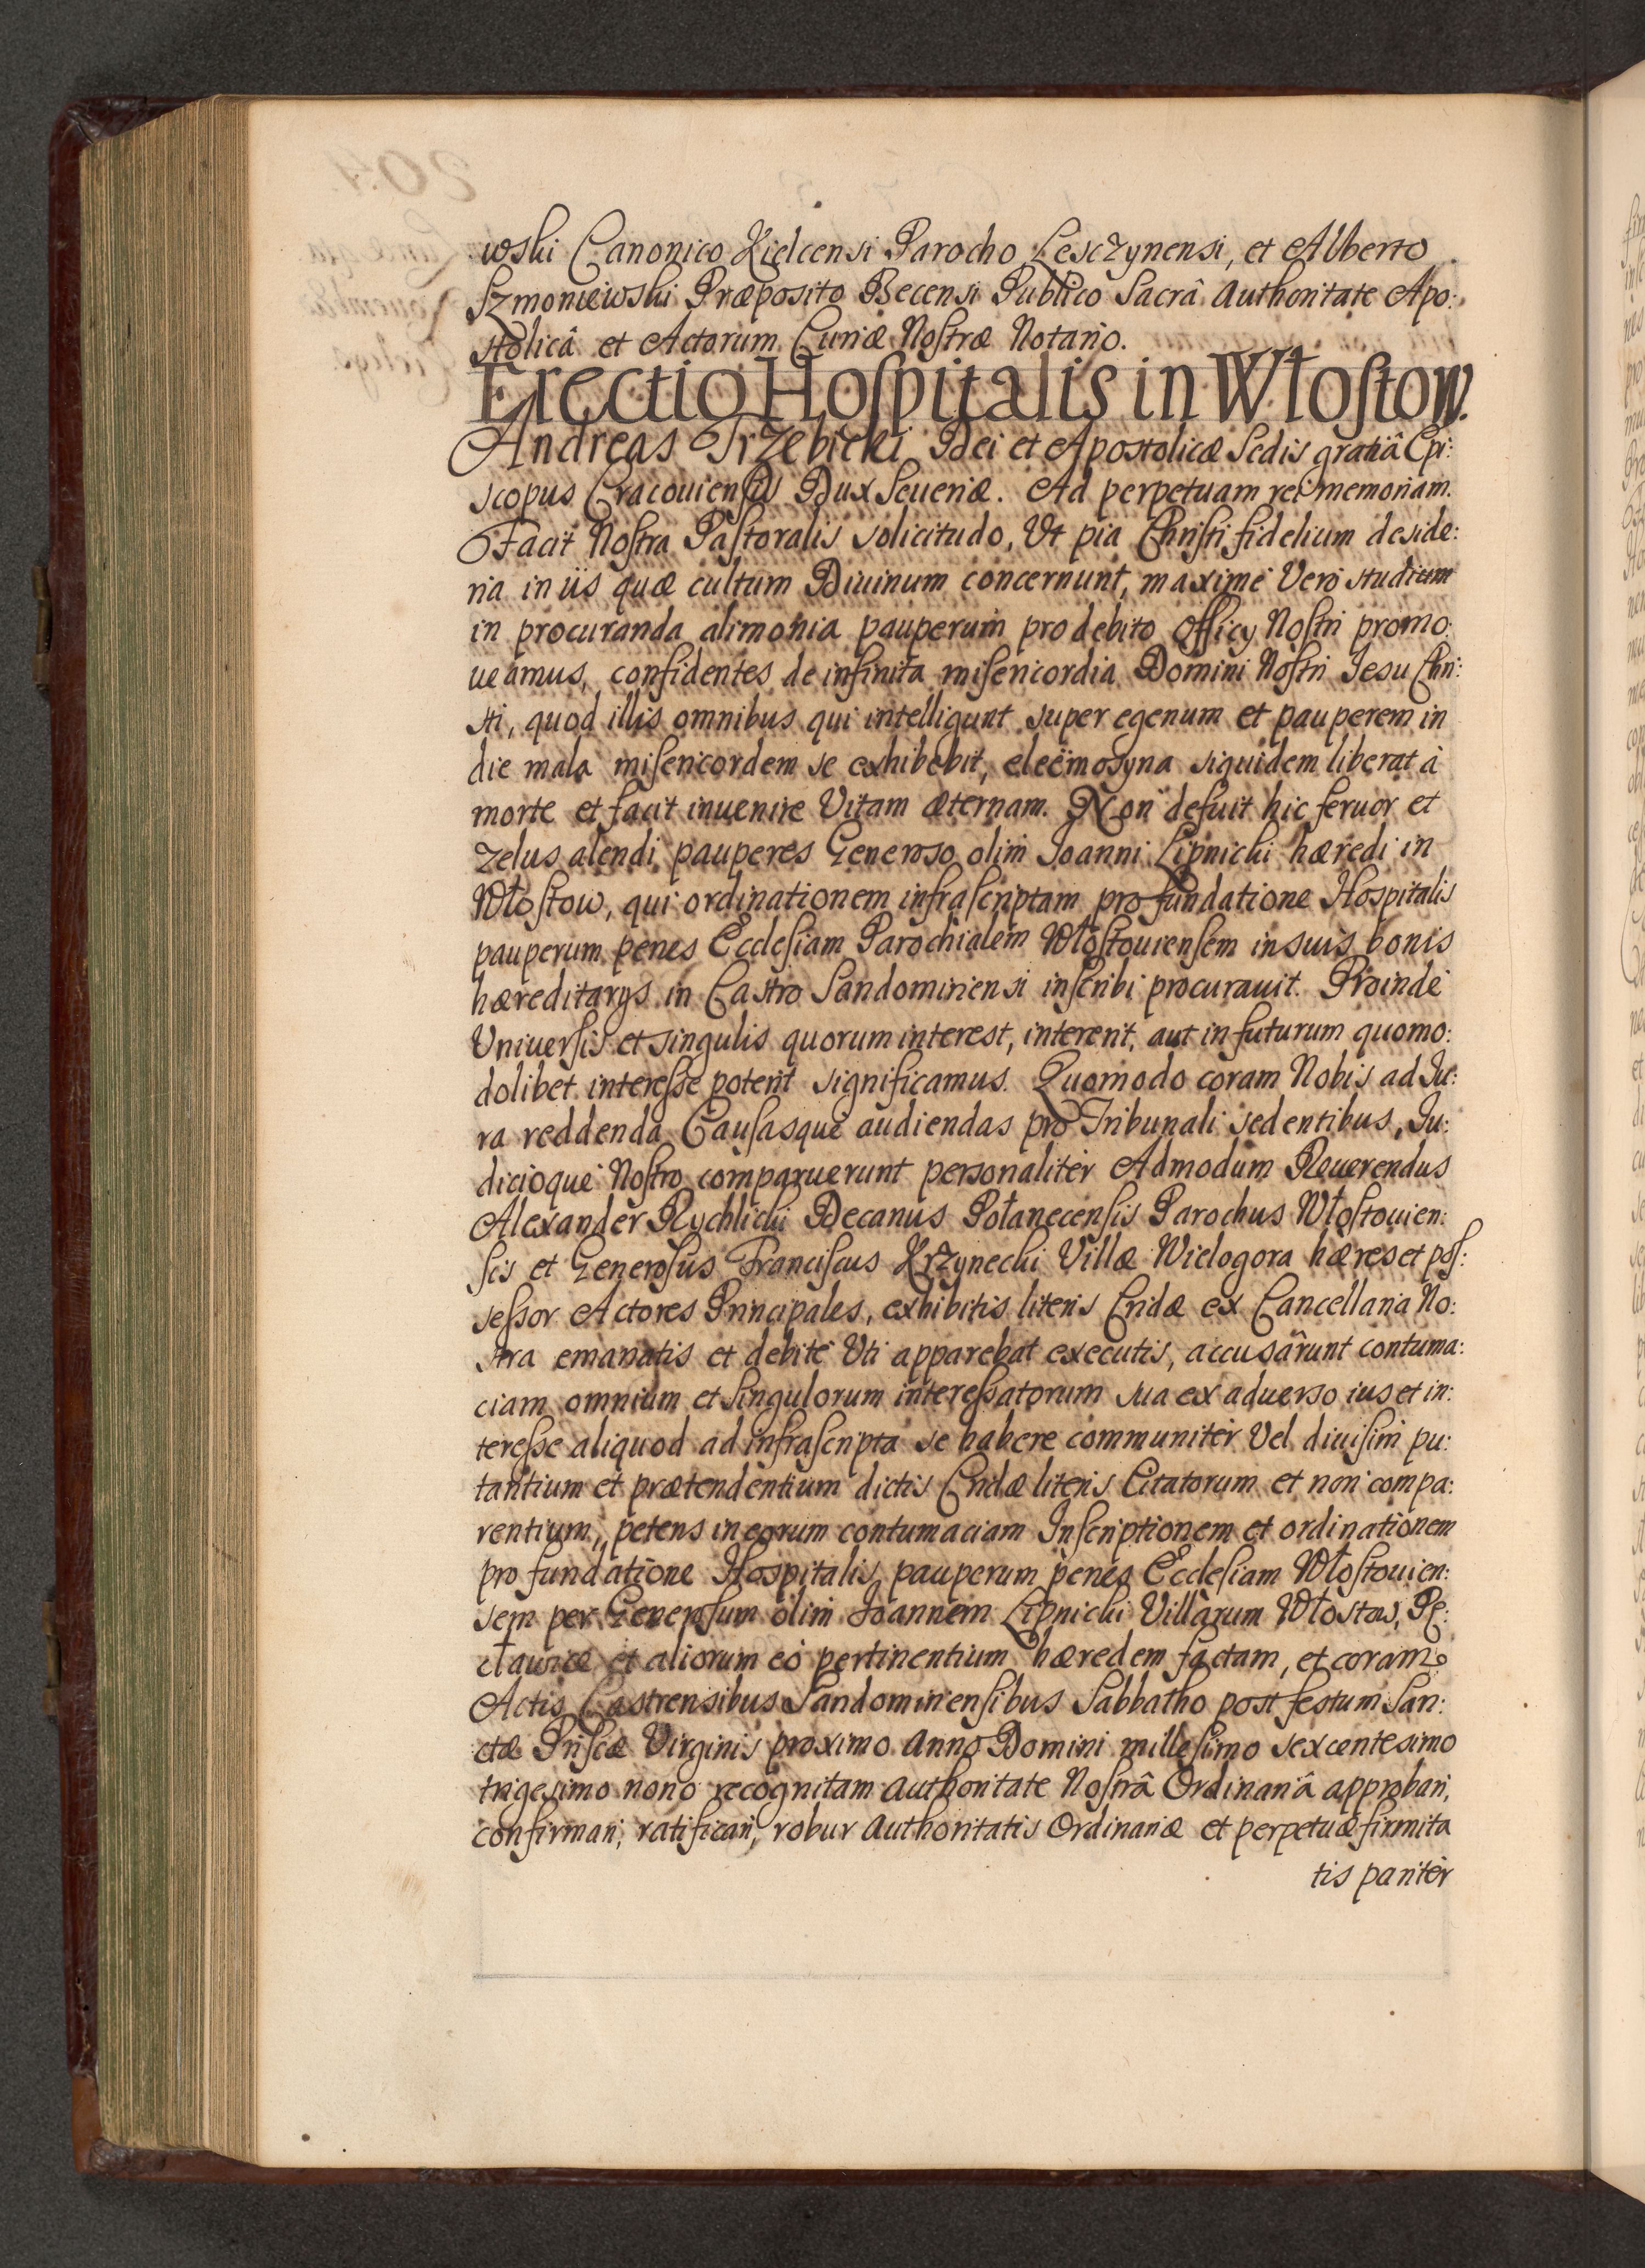 wski Canonico Kielcensi Parocho Lesczynensi, et Alberto
Szmoniewski Præposito Becensi Publico Sacrâ Authoritate Apo:
stolicâ et Actorum Curiæ Nostræ Notario.
Erectio Hospitalis in Włostow.
Andreas Trzebicki Dei et Apostolicæ Sedis gratiâ Epi:
scopus Cracouiensis Dux Seueriæ. Ad perpetuam rei memoriam.
Facit Nostra Pastoralis solicitudo, Vt pia Christi fidelium deside:
ria in iis quæ cultum Diuinum concernunt, maximè Verò studium
in procuranda alimonia pauperum pro debito Officy Nostri promo:
ueamus, confidentes de infinita misericordia Domini Nostri Iesu Chri:
sti, quod illis omnibus qui intelligunt super egenum et pauperem in
die mala misericordem se exhibebit, eleëmosyna siquidem liberat à
morte et facit inuenire Vitam æternam. Non defuit hic feruor et
zelus alendi pauperes Generoso olim Joanni Lipnicki hæredi in
Włostow, qui ordinationem infrascriptam pro fundatione Hospitalis
pauperum penes Ecclesiam Parochialem Włostouiensem in suis bonis
hæreditarys in Castro Sandomiriensi inscribi procurauit. Proindè
Vniuersis et singulis quorum interest, intererit, aut in futurum quomo:
dolibet interesse poterit significamus. Quomodo coram Nobis ad Iu:
ra reddenda Causasque audiendas pro Tribunali sedentibus, Iu:
dicioque Nostro comparuerunt personaliter Admodum Reuerendus
Alexander Rychlicki Decanus Połanecensis Parochus Włostouien:
sis et Generosus Franciscus Krzynecki Villæ Wielogora hæres et pos:
sessor Actores Principales, exhibitis literis Cridæ ex Cancellaria No:
stra emanatis et debitè Vti apparebat executis, accusârunt contuma:
ciam omnium et singulorum interessatorum sua ex aduerso ius et in:
teresse aliquod ad infrascripta se habere communiter Vel diuisim pu:
tantium et prætendentium dictis Cridæ literis Citatorum et non compa:
rentium, petens in eorum contumaciam Inscriptionem et ordinationem
pro fundatione Hospitalis pauperum penes Ecclesiam Włostouien:
sem per Generosum olim Joannem Lipnicki Villarum Włostow, Pe:
cławice et aliorum eò pertinentium hæredem factam, et coram
Actis Castrensibus Sandomiriensibus Sabbatho post festum San:
ctæ Priscæ Virginis proximo Anno Domini millesimo sexcentesimo
trigesimo nono recognitam Authoritate Nostrâ Ordinariâ approbari,
confirmari, ratificari, robur Authoritatis Ordinariæ et perpetuæ firmita
tis pariter